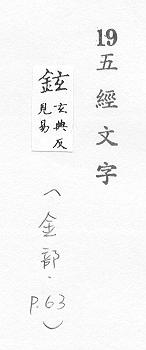 19五經文字
鉉玄典反
見易
（金部．P.63）